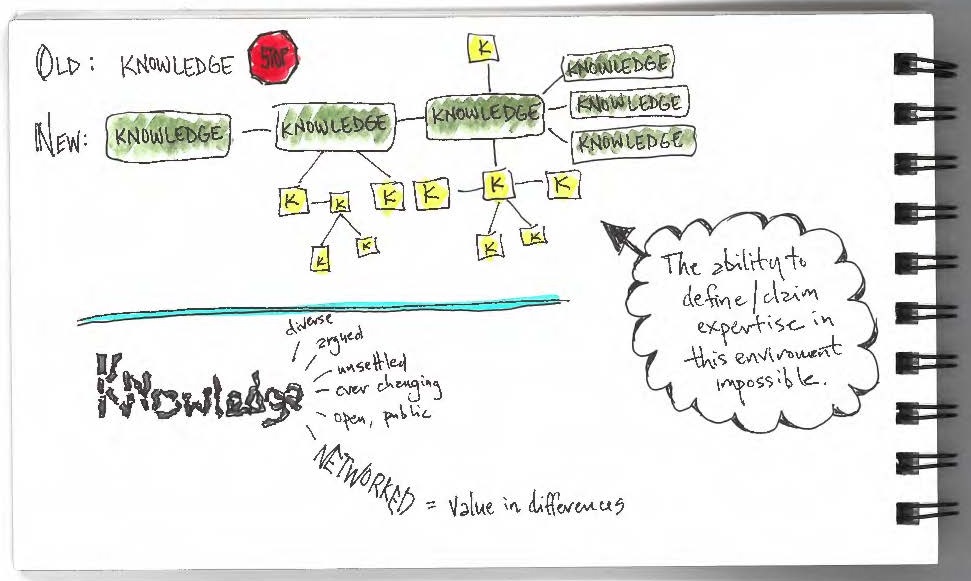 OLD: KNOWLEDGE STOP
K
KNOWLEDGE
KNOWLEDGE
KNOWLEDGE
NEW: KNOWLEDGE KNOWLEDGE KNOWLEDGE
K K K K K K
K K K K
The ability to
define/claim
expertise in
this enviroment
impossible.
diverse
argued
unsettled
ever changing
open, public
KNowledge
NETWORKED = Value in differences